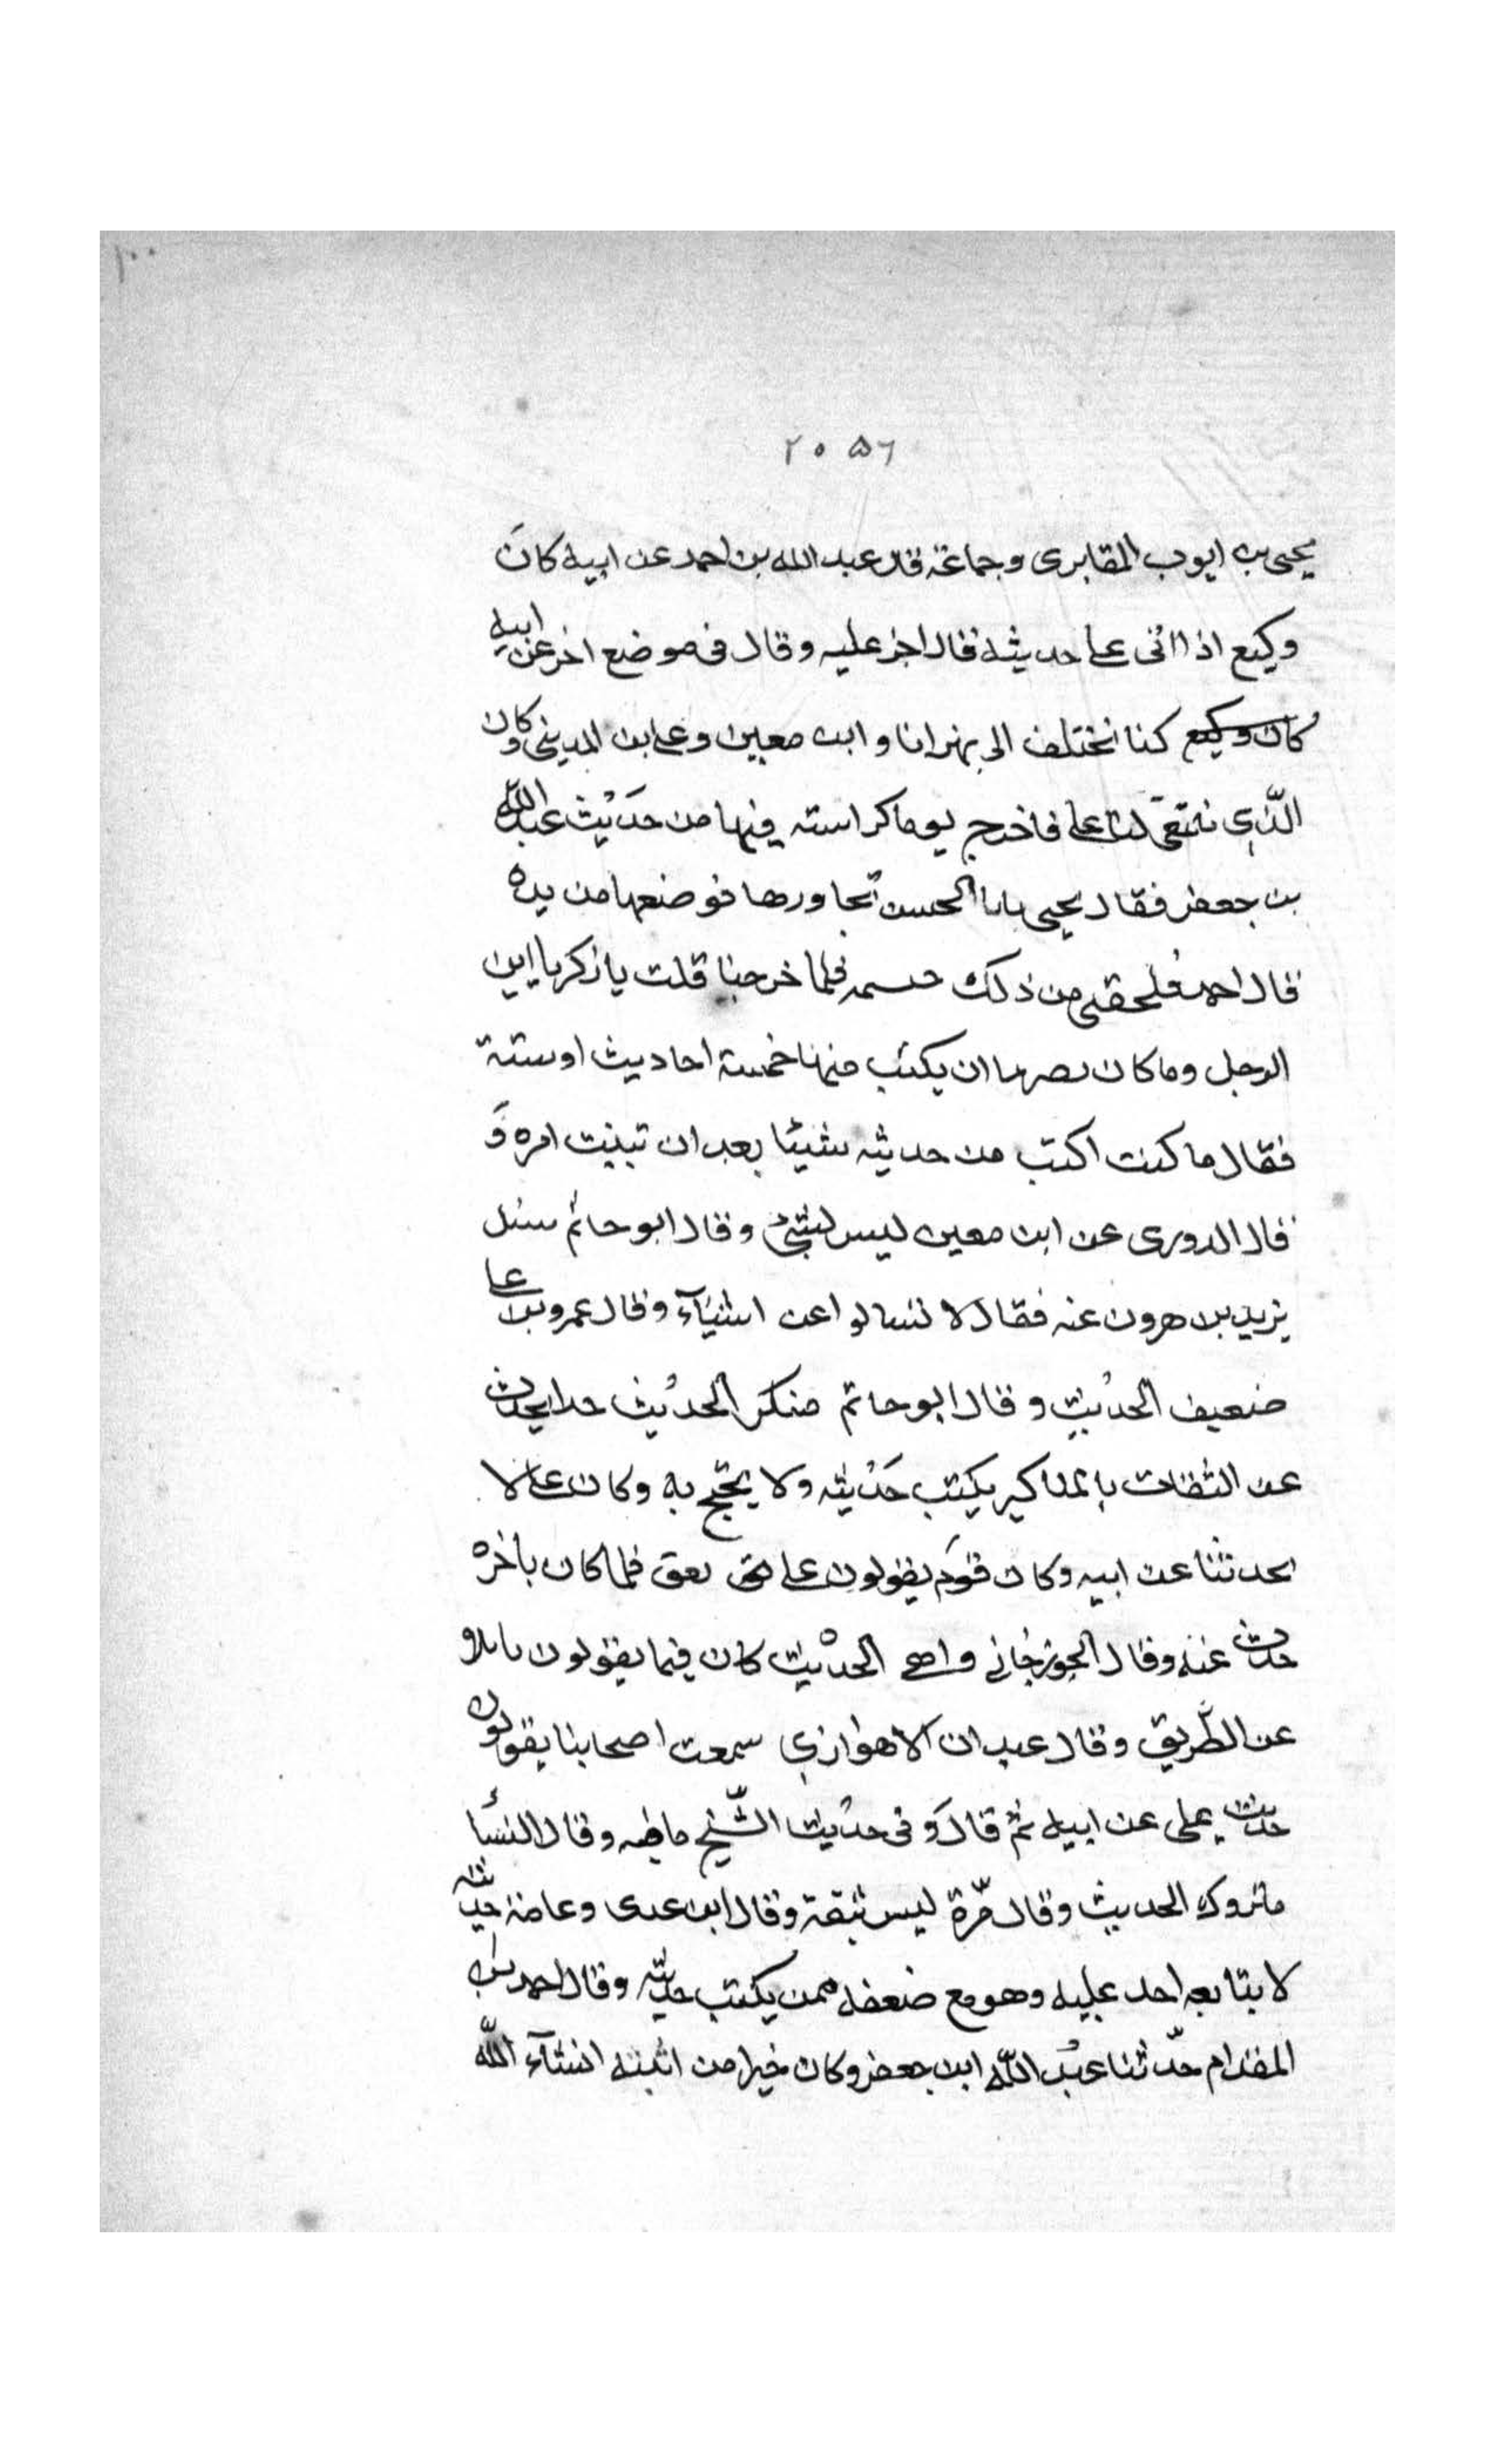 ١٠٠
٢٠٥٦
يحيى بن ايوب المقابرى وجماعة قال عبد الله بن احمد عن ابيه كان
وكيع اذا اتى على حديثه قال اجز عليه وقال فى موضع اخر عن ابيه
كان وكيع كنا نختلف الى بهز انا وابن معين وعلى بن المدينى وكان
الذى ننتقى لنا على فاخرج يوما كراسته فيها من حديث عبد الله
بن جعفر فقال يحيى يابا الحسن تجاورها فوضعها من يده
قال احمد فلحقنى من ذلك حسمه فلما خرجنا قلت يا زكريا اين
الرجل وما كان ان يكتب منها خمسة احاديث او ستة
فقال ما كنت اكتب من حديثه شيئا بعد ان تبينت امره وَ
قال الدورى عن ابن معين ليس بشئ وقال ابو حاتم سئل
يزيد بن هرون عنه فقال لا تسالوا عن اشياء وقال عمرو بن على
ضعيف الحديث وقال ابو حاتم منكر الحديث جدا يحدث
عن الثقات بالمناكير يكتب حديثه ولا يحتج به وكان على لا
يحدثنا عن ابيه وكان قوم يقولون على يعق فلما كان باخره
حدث عنه وقال الجوزجانى واهى الحديث كان فيما يقولون
عن الطريق وقال عبدان الاهوازى سمعت اصحابنا يقولون
حدث على عن ابيه ثم قال وفى حديث الشيخ ما فيه وقال النسا
متروك الحديث وقال مرة ليس بثقة وقال ابن عدى وعامة حديثه
لا يتابعه احد عليه وهو مع ضعفه ممن يكتب حديثه وقال احمد بن
المقدام حدثنا عبد الله ابن جعفر وكان خيرا من ابنه انشاء الله